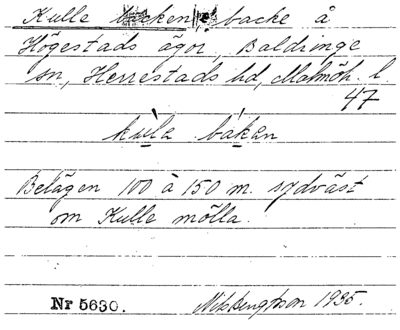 Kulle backen, backe å
Högestads ägor, Baldringe
sn, Herrestads hd, Malmöh. l.
47
kula bakan
Belägen 100 à 150 m. sydväst
om Kulle mölla.
Nr 5630. Nils Bengtsson 1935.